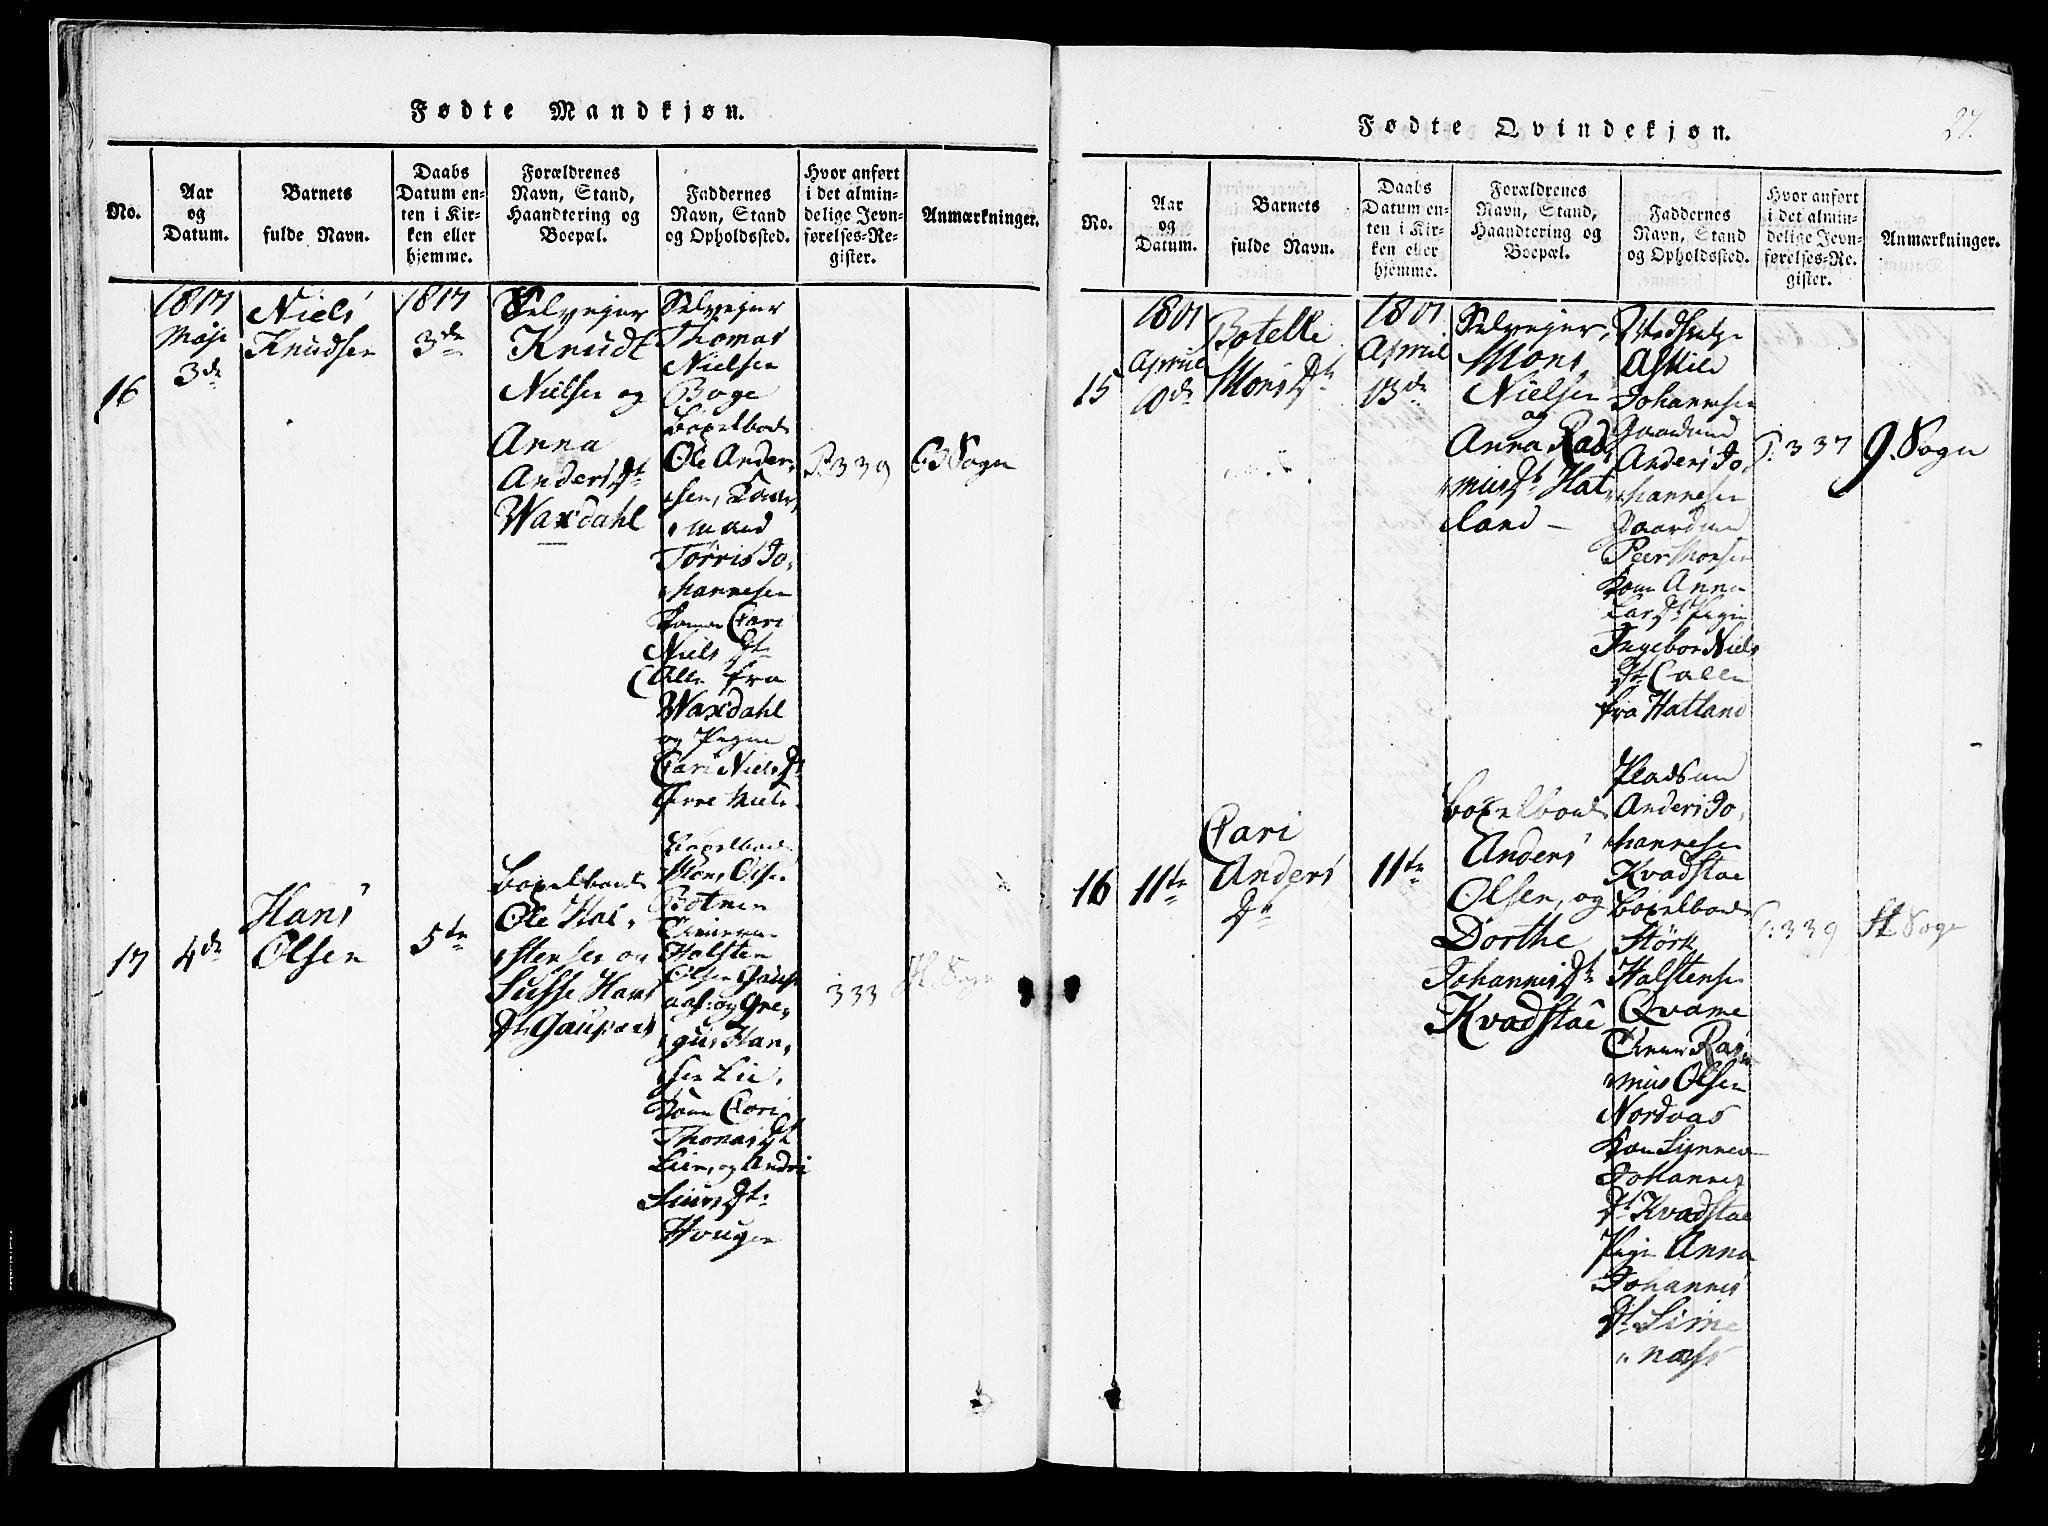 Fødte Mandkjøn.
No.
Aar
og
Datum.
Barnets
fulde Navn.
Daabs
Datum en-
ten i Kir-
ken eller
hjemme.
Forældrenes
Navn, Stand,
Haandtering og
Boepæl.
Faddernes
Navn, Stand
og Opholdssted.
Hvor anført
i det almin-
delige Jevn-
førelses-Re-
gister.
Anmærkninger.
16
1817
Maji
3de
Niels
Knudsen
1817
3de
Selvejer
Knudt
Nielsen og
Anna
Anders Dt
Waxdahl
Selvejer
Thomas
Nielsen
Boge
Bøxelbond
Ole Ander,
sen,
mand
Tørris Jo,
hannesen
Kone Cari
Niels Dt
Alle fra
Waxdahl
og Pigen
Cari Niels Dt
P: 339
G Sogn
17
4de
Hans
Olsen
5te
Bøxelbond
Ole Hal,
stensen og
Sisse Hans
Dt Gaupaas
Bøxelbond
Mons Olsen
Botnen
Halsten
Olsen Gaup,
aas: og Gre,
gus Han,
sen Lie,
Kone Cari
Thomas Dt
Lien, og
Siurs Dt
Hougen
333
H. Sogn
Fødte Qvindekjøn.
27.
No.
Aar
og
Datum.
Barnets
fulde Navn.
Daabs
Datum en-
ten i Kir-
ken eller
hjemme.
Forældrenes
Navn, Stand,
Haandtering og
Boepæl.
Faddernes
Navn, Stand
og Opholdssted.
Hvor anført
i det almin-
delige Jevn-
førelses-Re-
gister.
Anmærkninger.
15
April
Botelle
Mons Dt
April
13de
Selvejer,
Mons
Nielsen
og
Anna Ras,
mus Dt Hat,
land
Askild
Johannesen
Anders Jo,
hannesen
Peer Monsen
Kone Anna
Lars Dt Pigen
Ingebor Niels
Dt Calle
fra Hatland
P: 337
G. Sogn
16
11te
Cari
Anders
Dt
11te
Bøxelbond
Anders
Olsen, og
Dorthe
Johannis Dt
Kvadstae
Pladsmand
Anders Jo,
hannesen
Kvadstae
Bøxelbond
Størk
Halstensen
Qvame
Ras,
mus Olsen
Nordvas
Kone Synneve
Johannes
Dt Kvadstae
Pige Anna
Johannes
Dt Sime
næss
P: 339
H Sogn